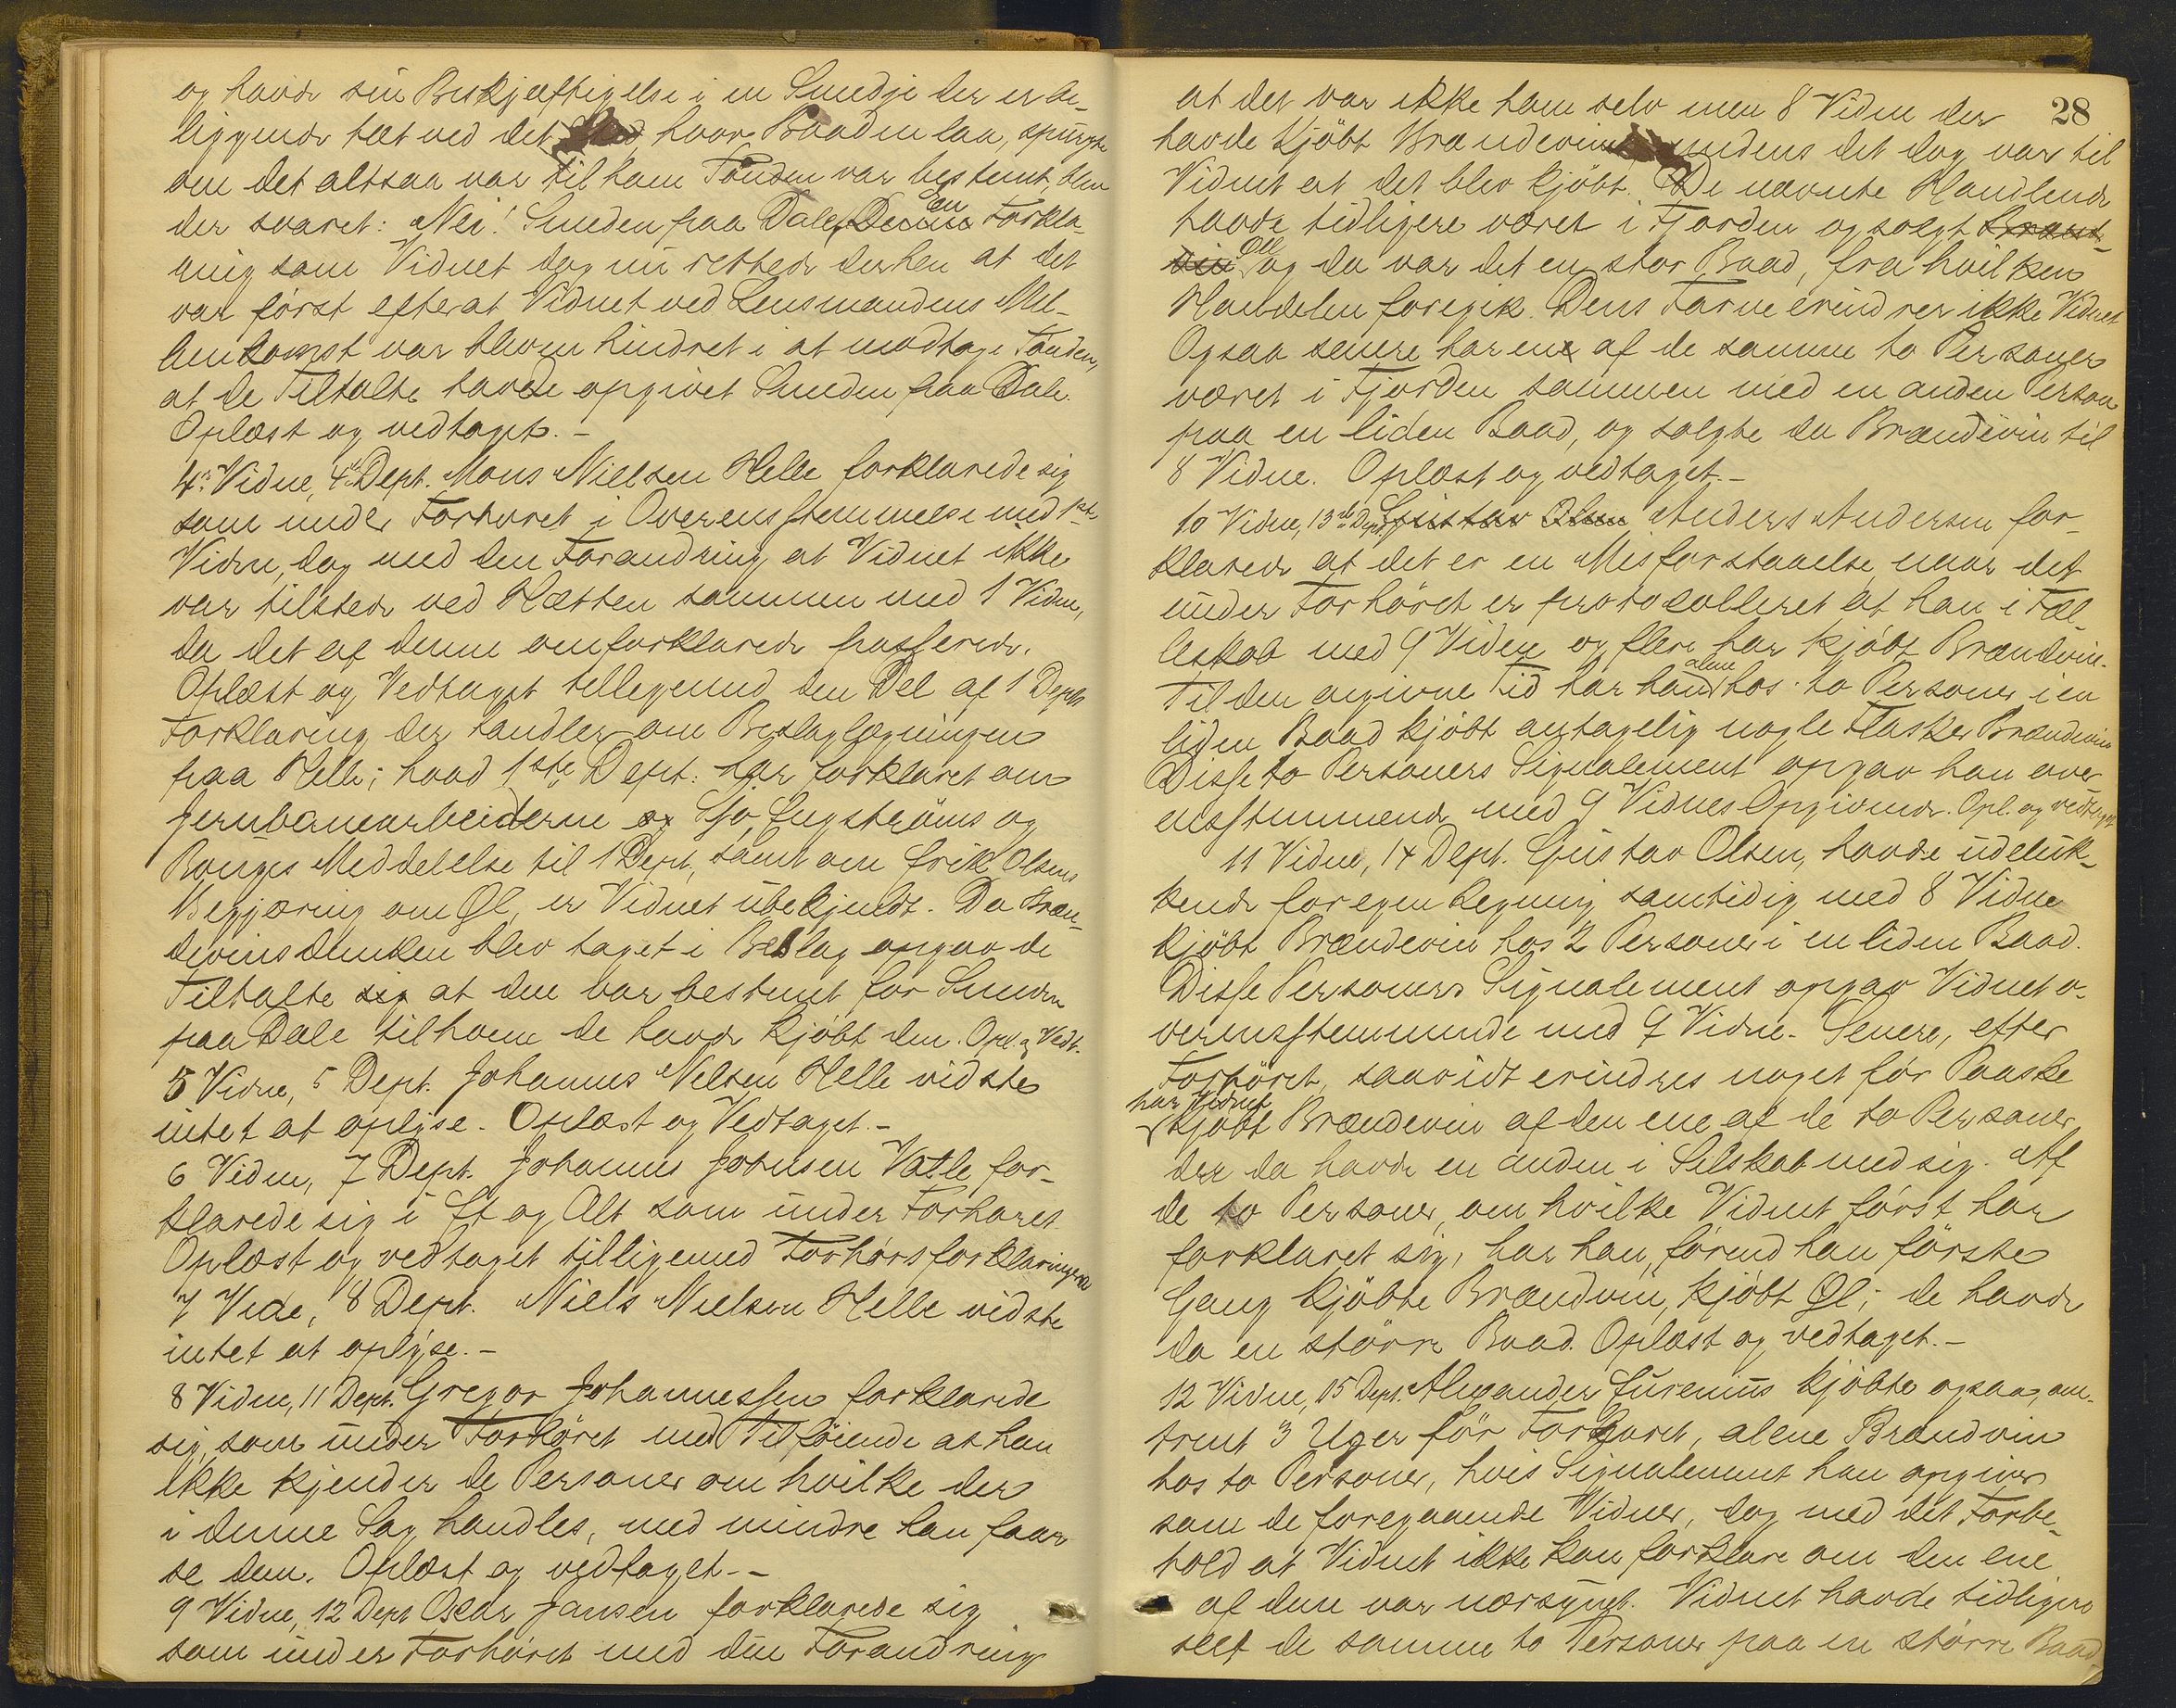 og havde sin Beskjæftigelse i en Smedje der er be-
liggende tæt ved det Sted hvor Baaden laa, spurgte
om det altsaa var til ham Tønden var bestemt, blev
der svaret: Nei! Smeden paa Dale, Denne En Forkla-
ring som Vidnet dog nu rettede derhen at det
var først efterat Vidnet ved Lensmandens Mel-
lemkomst var bleven hindret i at modtage Tønden,
at de Tiltalte havde opgivet Smeden paa Dale.
Oplæst og vedtaget.-
4de Vidne, 4de Dept. Mons Nielsen Helle forklarede sig
som under Forhøret i Overensstemmelse med 1ste
Vidne, dog med den Forandring at Vidnet ikke
var tilstede ved Hætten sammen med 1 Vidne,
da det af denne omforklarede passerede.
Oplæst og Vedtaget tilligemed den Del af 1 Depts
Forklaring der handler om Beslaglægningen
paa Helle; hvad 1ste Dept. har forklaret om
Jernbanearbeiderne og Sjo, Engstrøms og
Bonges Meddelelse til 1 Dept, samt om Erik Olsens
Begjæring om Øl, er Vidnet ubekjendt. Da Bræn-
devinsdunken blev taget i Beslag opgav de
Tiltalte sig at den var bestemt for Smeden
paa Dale til hvem de havde kjøbt den. Opl. og Vedt.
5 Vidne, 5 Dept. Johannes Nelsen Helle vidste
intet at oplyse. Oplæst og Vedtaget.-
6 Vidne, 7 Dept. Johannes Johnsen Vatle for-
klarede sig i Et og Alt som under Forhøret
Oplæst og vedtaget tilligemed Forhørsforklaringen
7 Vide, 8 Dept. Niels Nielsen Helle vidste
intet at oplyse.-
8 Vidne, 11 Dept. Gregor Johannessen forklarede
sig som under Forhøret med Tilføiende at han
ikke kjender de Personer om hvilke der
i denne Sag handles, med mindre han faar
se dem. Oplæst og vedtaget.-
9 Vidne, 12 Dept Oscar Jansen forklarede sig
som under Forhøret med den Forandring
28
at det var ikke ham selv men 8 Vidne der
havde kjøbt Brændevinet medens det dog var til
Vidnet at det blev kjøbt. De nævnte Handlende
havde tidligere været i Fjorden og solgt Brænd-
vin Øl og da var det en stor Baad, fra hvilken
Handelen foregik. Dens Farve erindrer ikke Vidnet
Ogsaa senere har en af de samme to Personer
været i Fjorden sammen med en anden Person
paa en liden Baad, og solgte da Brændevin til
8 Vidne. Oplæst og vedtaget.-
10 Vidne, 13de Dept. Gustav Olsen Anders Andersen for-
klarede at det er en Misforstaaelse naar det
under Forhøret er protocolleret at han i Fæl-
leskab med 9 Vidne og flere har kjøbt Brændvin.
Til den angivne Tid har han alene hos to Personer i en
liden Baad kjøbt antagelig nogle Flasker Brændevin
Disse to Personers Signalement opgav han over-
ensstemmende med 9 Vidnes Opgivende. Opl. og vedtaget
11 Vidne, 14 Dept. Gustav Olsen, havde udeluk-
kende for egen Regning samtidig med 8 Vidne
kjøbt Brændevin hos 2 Personer i en liden Baad.
Disse Personers Signalement opgav Vidnet o-
verensstemmende med 9 Vidne. Senere, efter
Forhøret, saavidt erindres noget før Paaske
har Vidnet
kjøbt Brændevin af den ene af de to Personer
der da havde en anden i Selskab med sig. Af
de to Personer, om hvilke Vidnet først har
forklaret sig, har han, førend han første
Gang kjøbte Brændvin, kjøbt Øl; de havde
da en større Baad. Oplæst og vedtaget.-
12 Vidne, 15 Dept. Alexander Eurenius kjøbte ogsaa, om-
trent 3 Uger før Forhøret, alene Brændvin
hos to Personer, hvis Signalement han opgiver
som de foregaaende Vidner, dog med det Forbe-
hold at Vidnet ikke kan forklare om den ene
af dem var nærsynet. Vidnet havde tidligere
seet de samme to Personer paa en større Baad